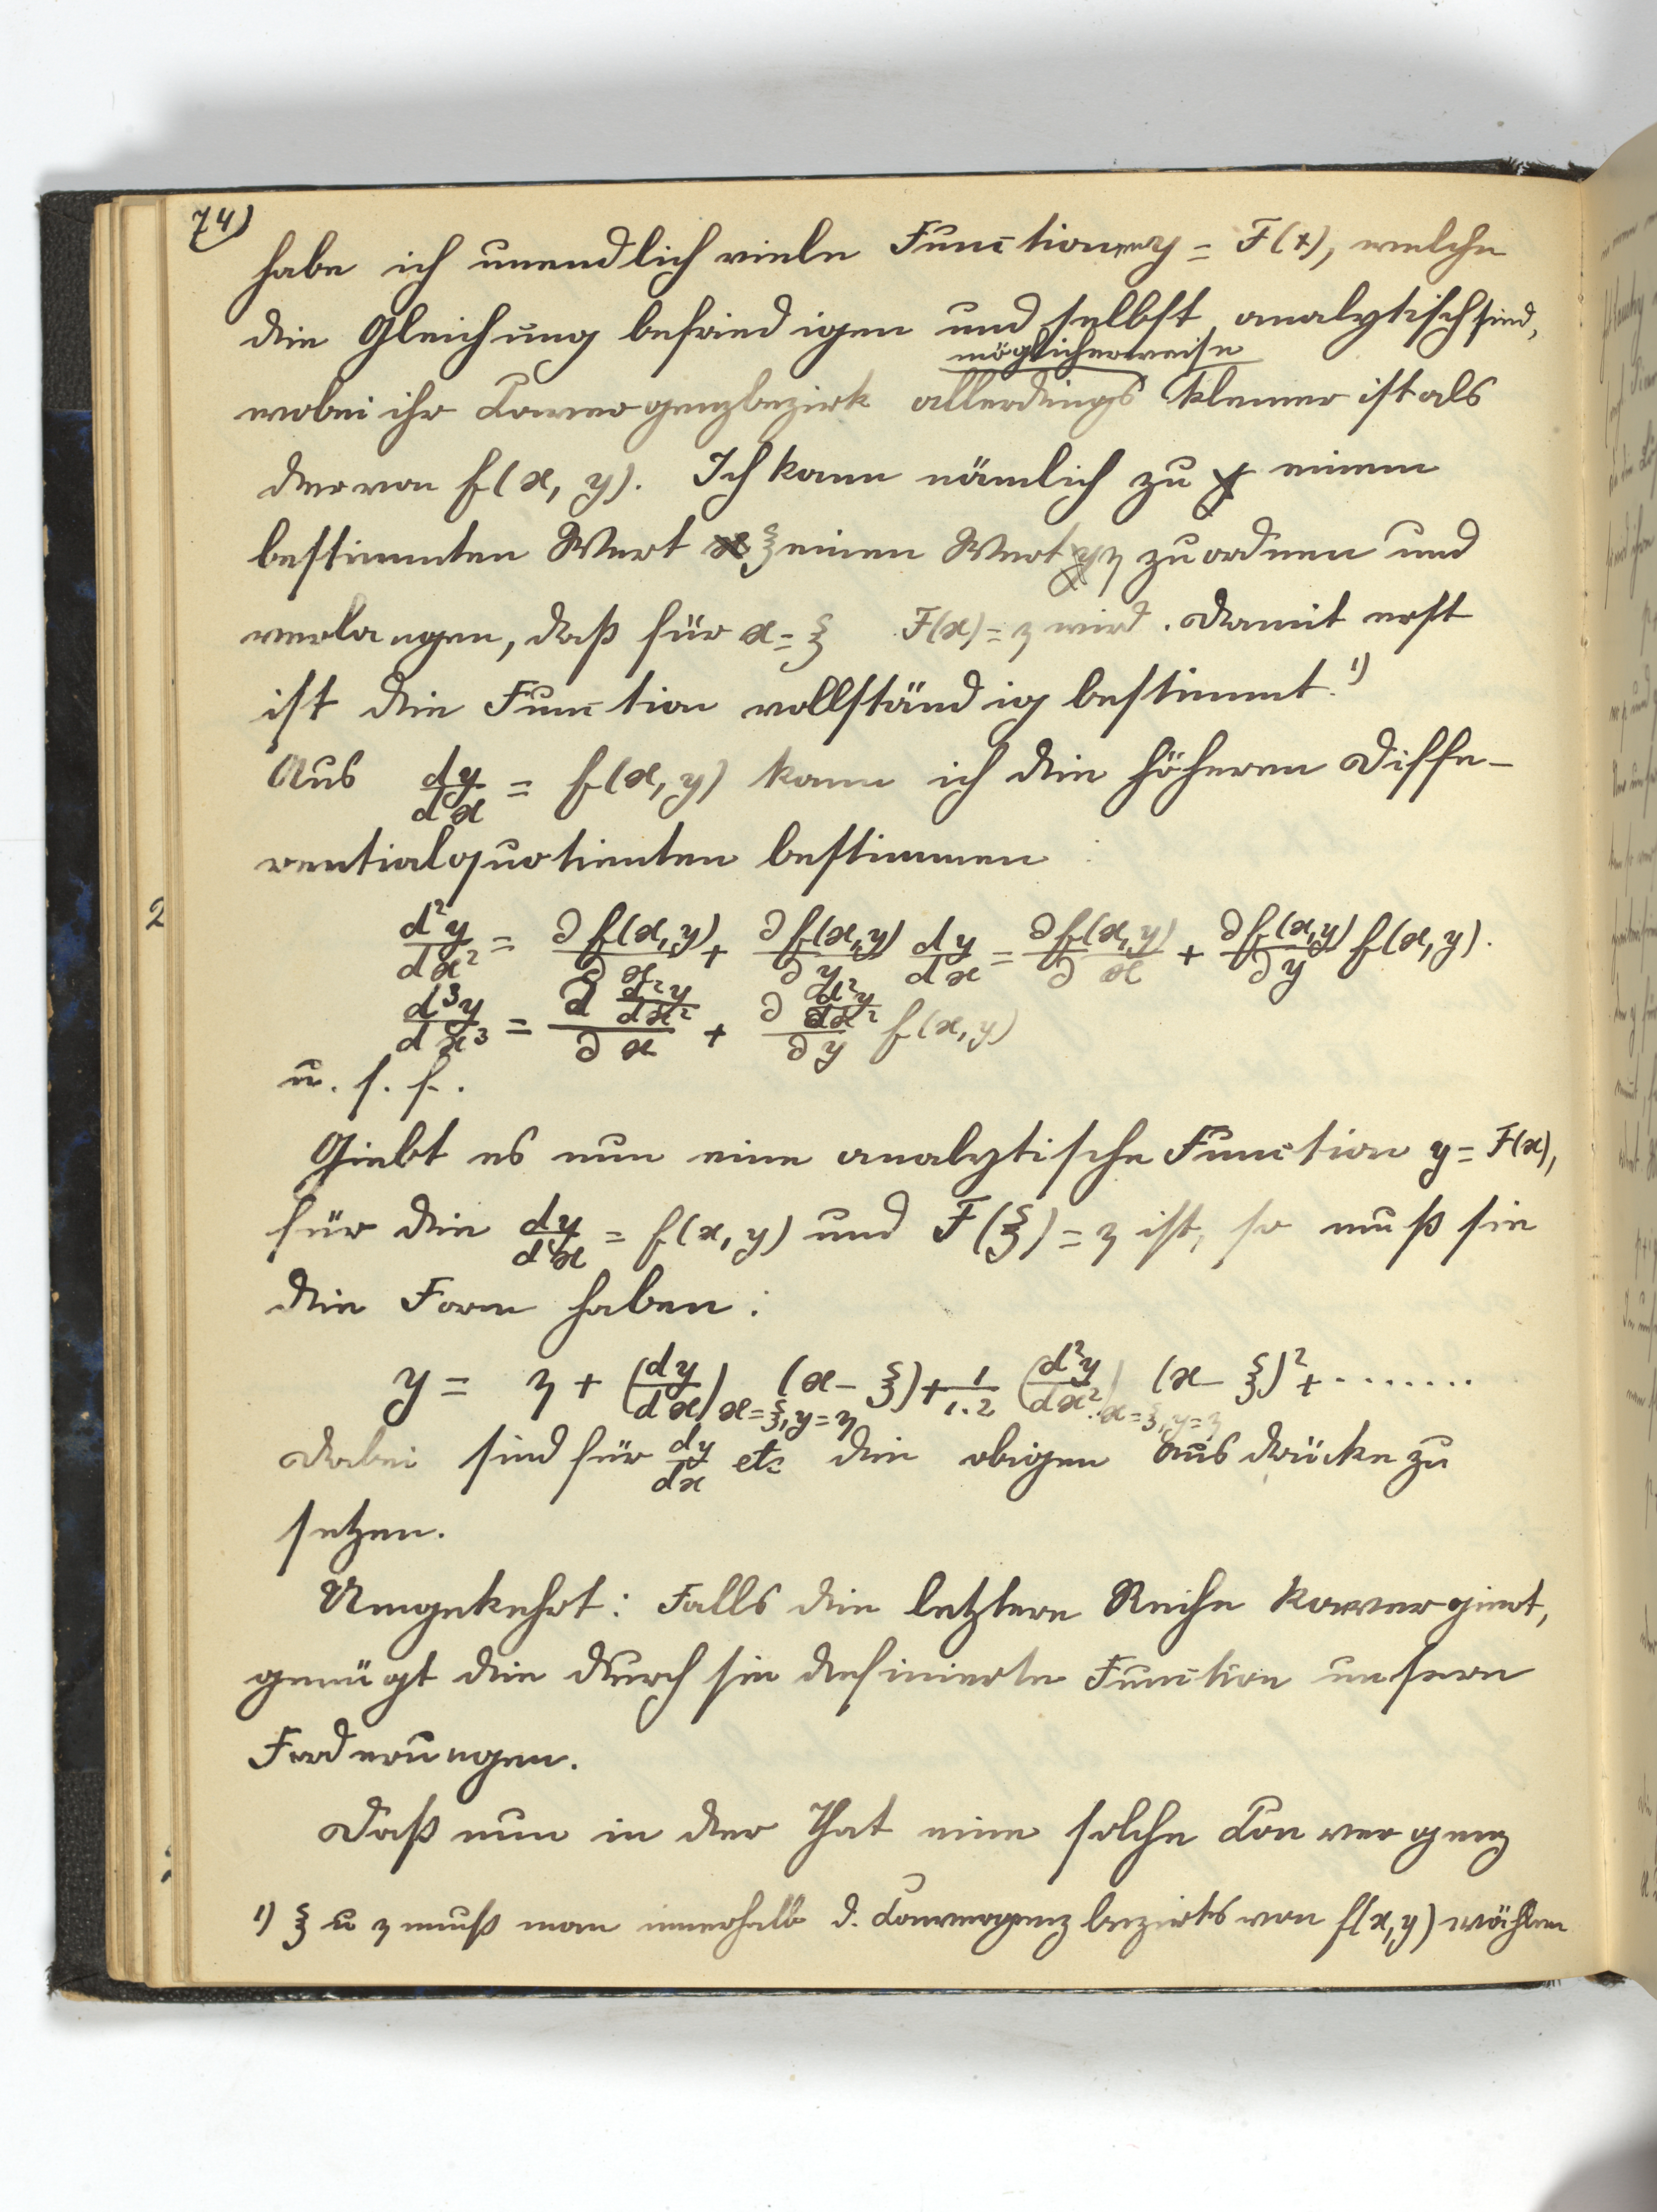 74)
habe ich unendlich viele Functionen y = F(x), welche
die Gleichung befriedigen und selbst analytisch sind,
möglicherweise
wobei ihr Convergenzbezirk allerdings kleiner ist als
der von f(x, y). Ich kann nämlich zu einem
bestimmten Wert ξ einen Wert η zuordnen und
verlangen, daß für x = ξ F(x) = η wird. Damit erst
ist die Function vollständig bestimmt.¹⁾
Aus dy/dx = f(x, y) kann ich die höheren Diffe-
rentialquotienten bestimmen
d²y/dx² = ∂f(x,y)/∂x + ∂f(x,y)/∂y dy/dx = ∂f(x,y)/∂x + ∂f(x,y)/∂y f(x,y).
d³y/dx³ = ∂ d²y/dx² / ∂x + ∂ d²y/dx² / ∂y f(x,y)
u. s. f.
Giebt es nun eine analytische Function y = F(x),
für die dy/dx = f(x, y) und F(ξ) = η ist, so muß sie
die Form haben:
y = η + (dy/dx)x=ξ, y=η (x − ξ) + 1/1.2 (d²y/dx²)x=ξ, y=η (x − ξ)² + ........
Dabei sind für dy/dx etc die obigen Ausdrücke zu
setzen.
Umgekehrt: Falls die letztere Reihe konvergiert,
genügt die durch sie definierte Function unsern
Forderungen.
Daß nun in der That eine solche Convergenz
1) ξ u η muß man innerhalb d. Convergenzbezirks von f(x,y) wählen